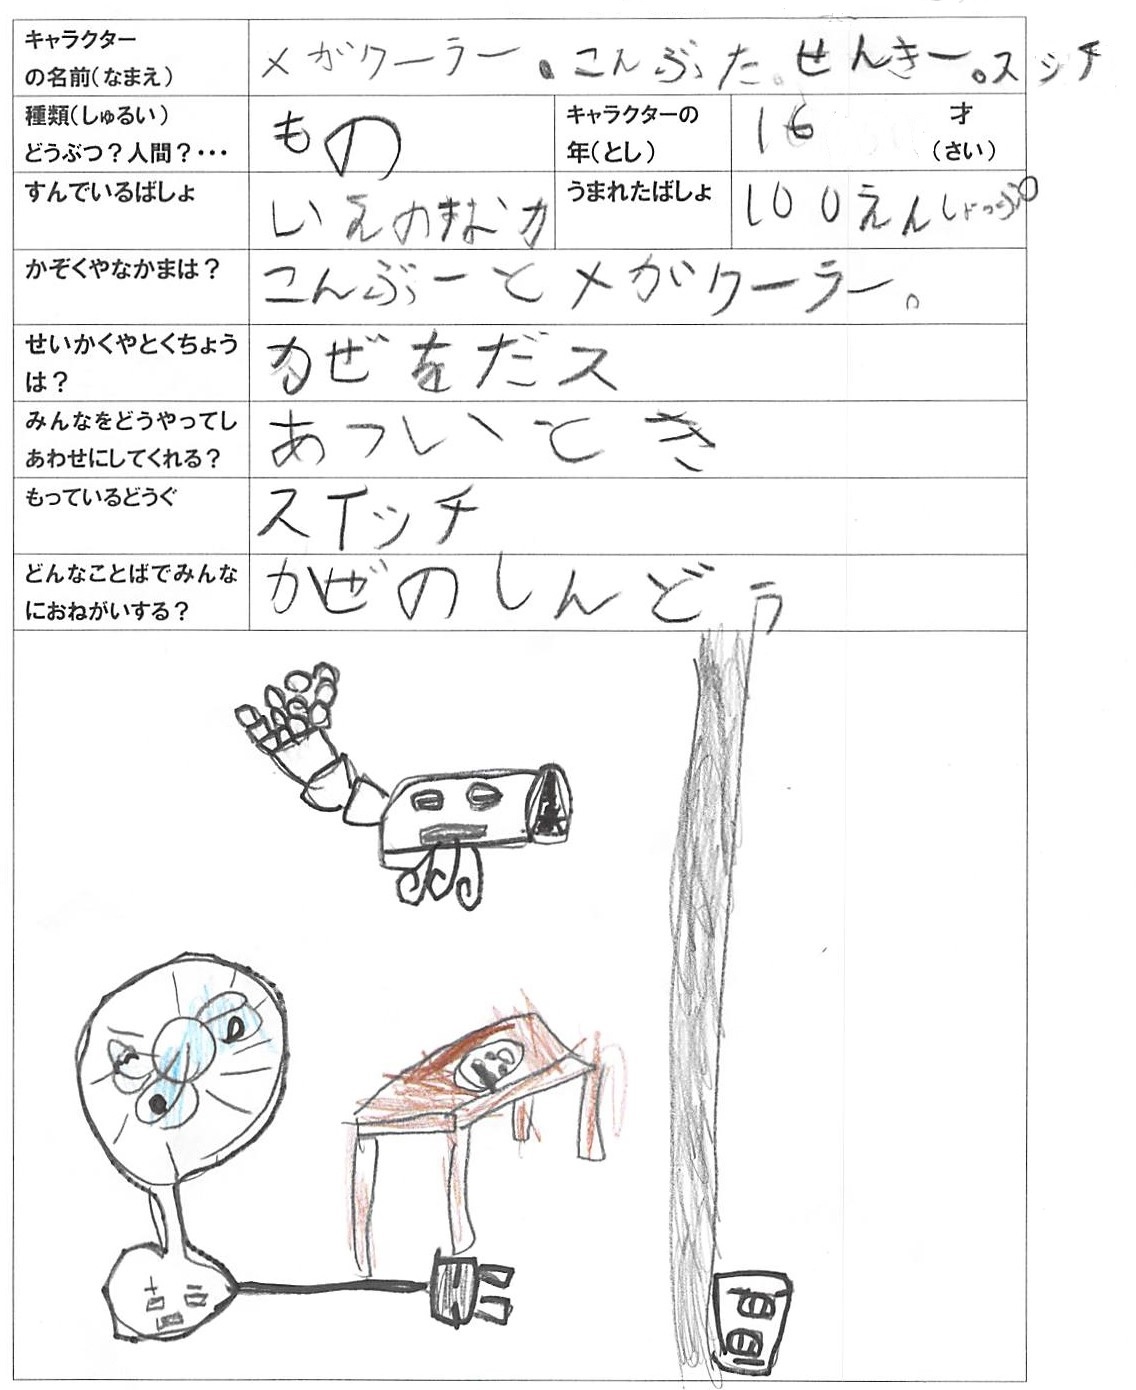 キャラクター
の名前(なまえ)
メガクーラー。こんぶた。せんきー。スシチ
種類(しゅるい)
どうぶつ？人間？・・・
もの
キャラクターの
年(とし)
16
才
(さい)
すんでいるばしょ
いえのまなか
うまれたばしょ
100えんしょっぷ
かぞくやなかまは？
こんぶーとメガクーラー。
せいかくやとくちょう
は？
かぜをだス
みんなをどうやってし
あわせにしてくれる？
あついとき
もっているどうぐ
スイッチ
どんなことばでみんな
におねがいする？
かぜのしんどう